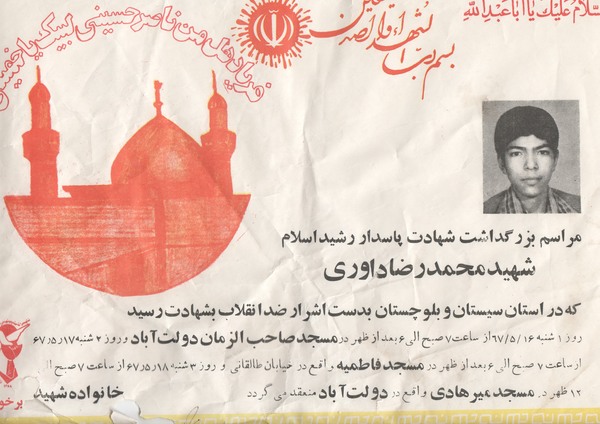 السلام عليك يا اباعبدالله
بسم رب الشهداء والصديقين
فریاد هل من ناصر حسینی لبیک یا خمینی
مراسم بزرگداشت شهادت پاسدار رشید اسلام
شهید محمدرضا داوری
که در استان سیستان و بلوچستان بدست اشرار ضد انقلاب بشهادت رسید
روز ۱ شنبه ۶۷/۵/۱۶ از ساعت ۷ صبح الی ۶ بعد از ظهر در مسجد صاحب الزمان دولت آباد و روز ۲ شنبه ۶۷/۵/۱۷
از ساعت ۷ صبح الی ۶ بعد از ظهر در مسجد فاطمیه واقع در خیابان طالقانی و روز ۳ شنبه ۶۷/۵/۱۸ از ساعت ۷ صبح الی
۱۲ ظهر در مسجد میر هادی واقع در دولت آباد منعقد می گردد
خانواده شهید